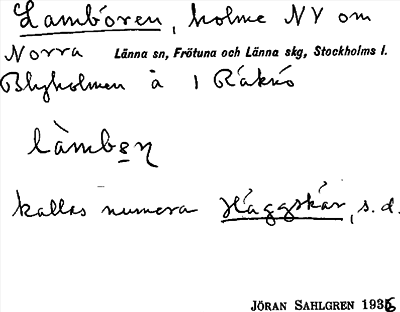 Lambören, holme NV om
Norra Länna sn, Frötuna och Länna skg, Stockholms l.
Blyholmen å 1 Råknö
làmbeŋ
kallas numera Häggskär, s.d.
JÖRAN SAHLGREN 1936